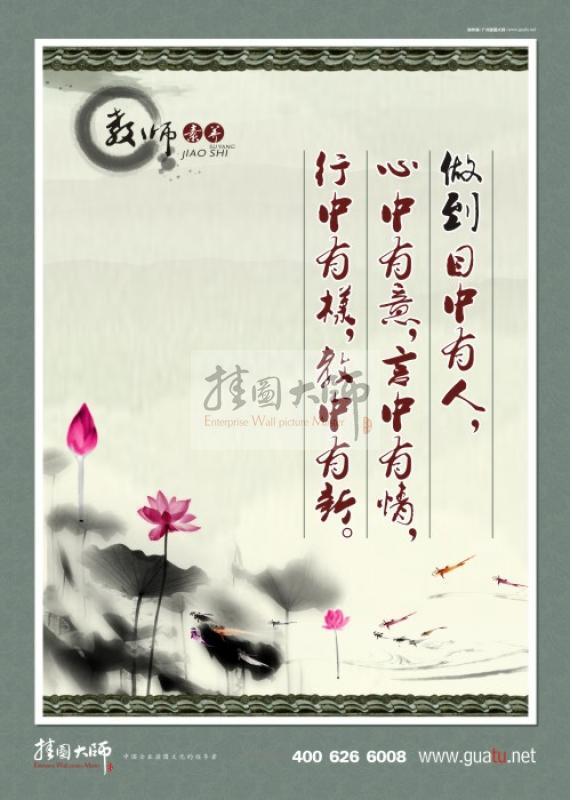 www.guatu.net
教师素养
SU YANG
JIAO SHI
做到目中有人，
心中有意，言中有情，
行中有樣，教中有新。
挂圖大师
Enterprise Wall picture Master
挂圖大师
Enterprise Wall picture Master
中国企业挂图文化的领导者
400 626 6008 www.guatu.net